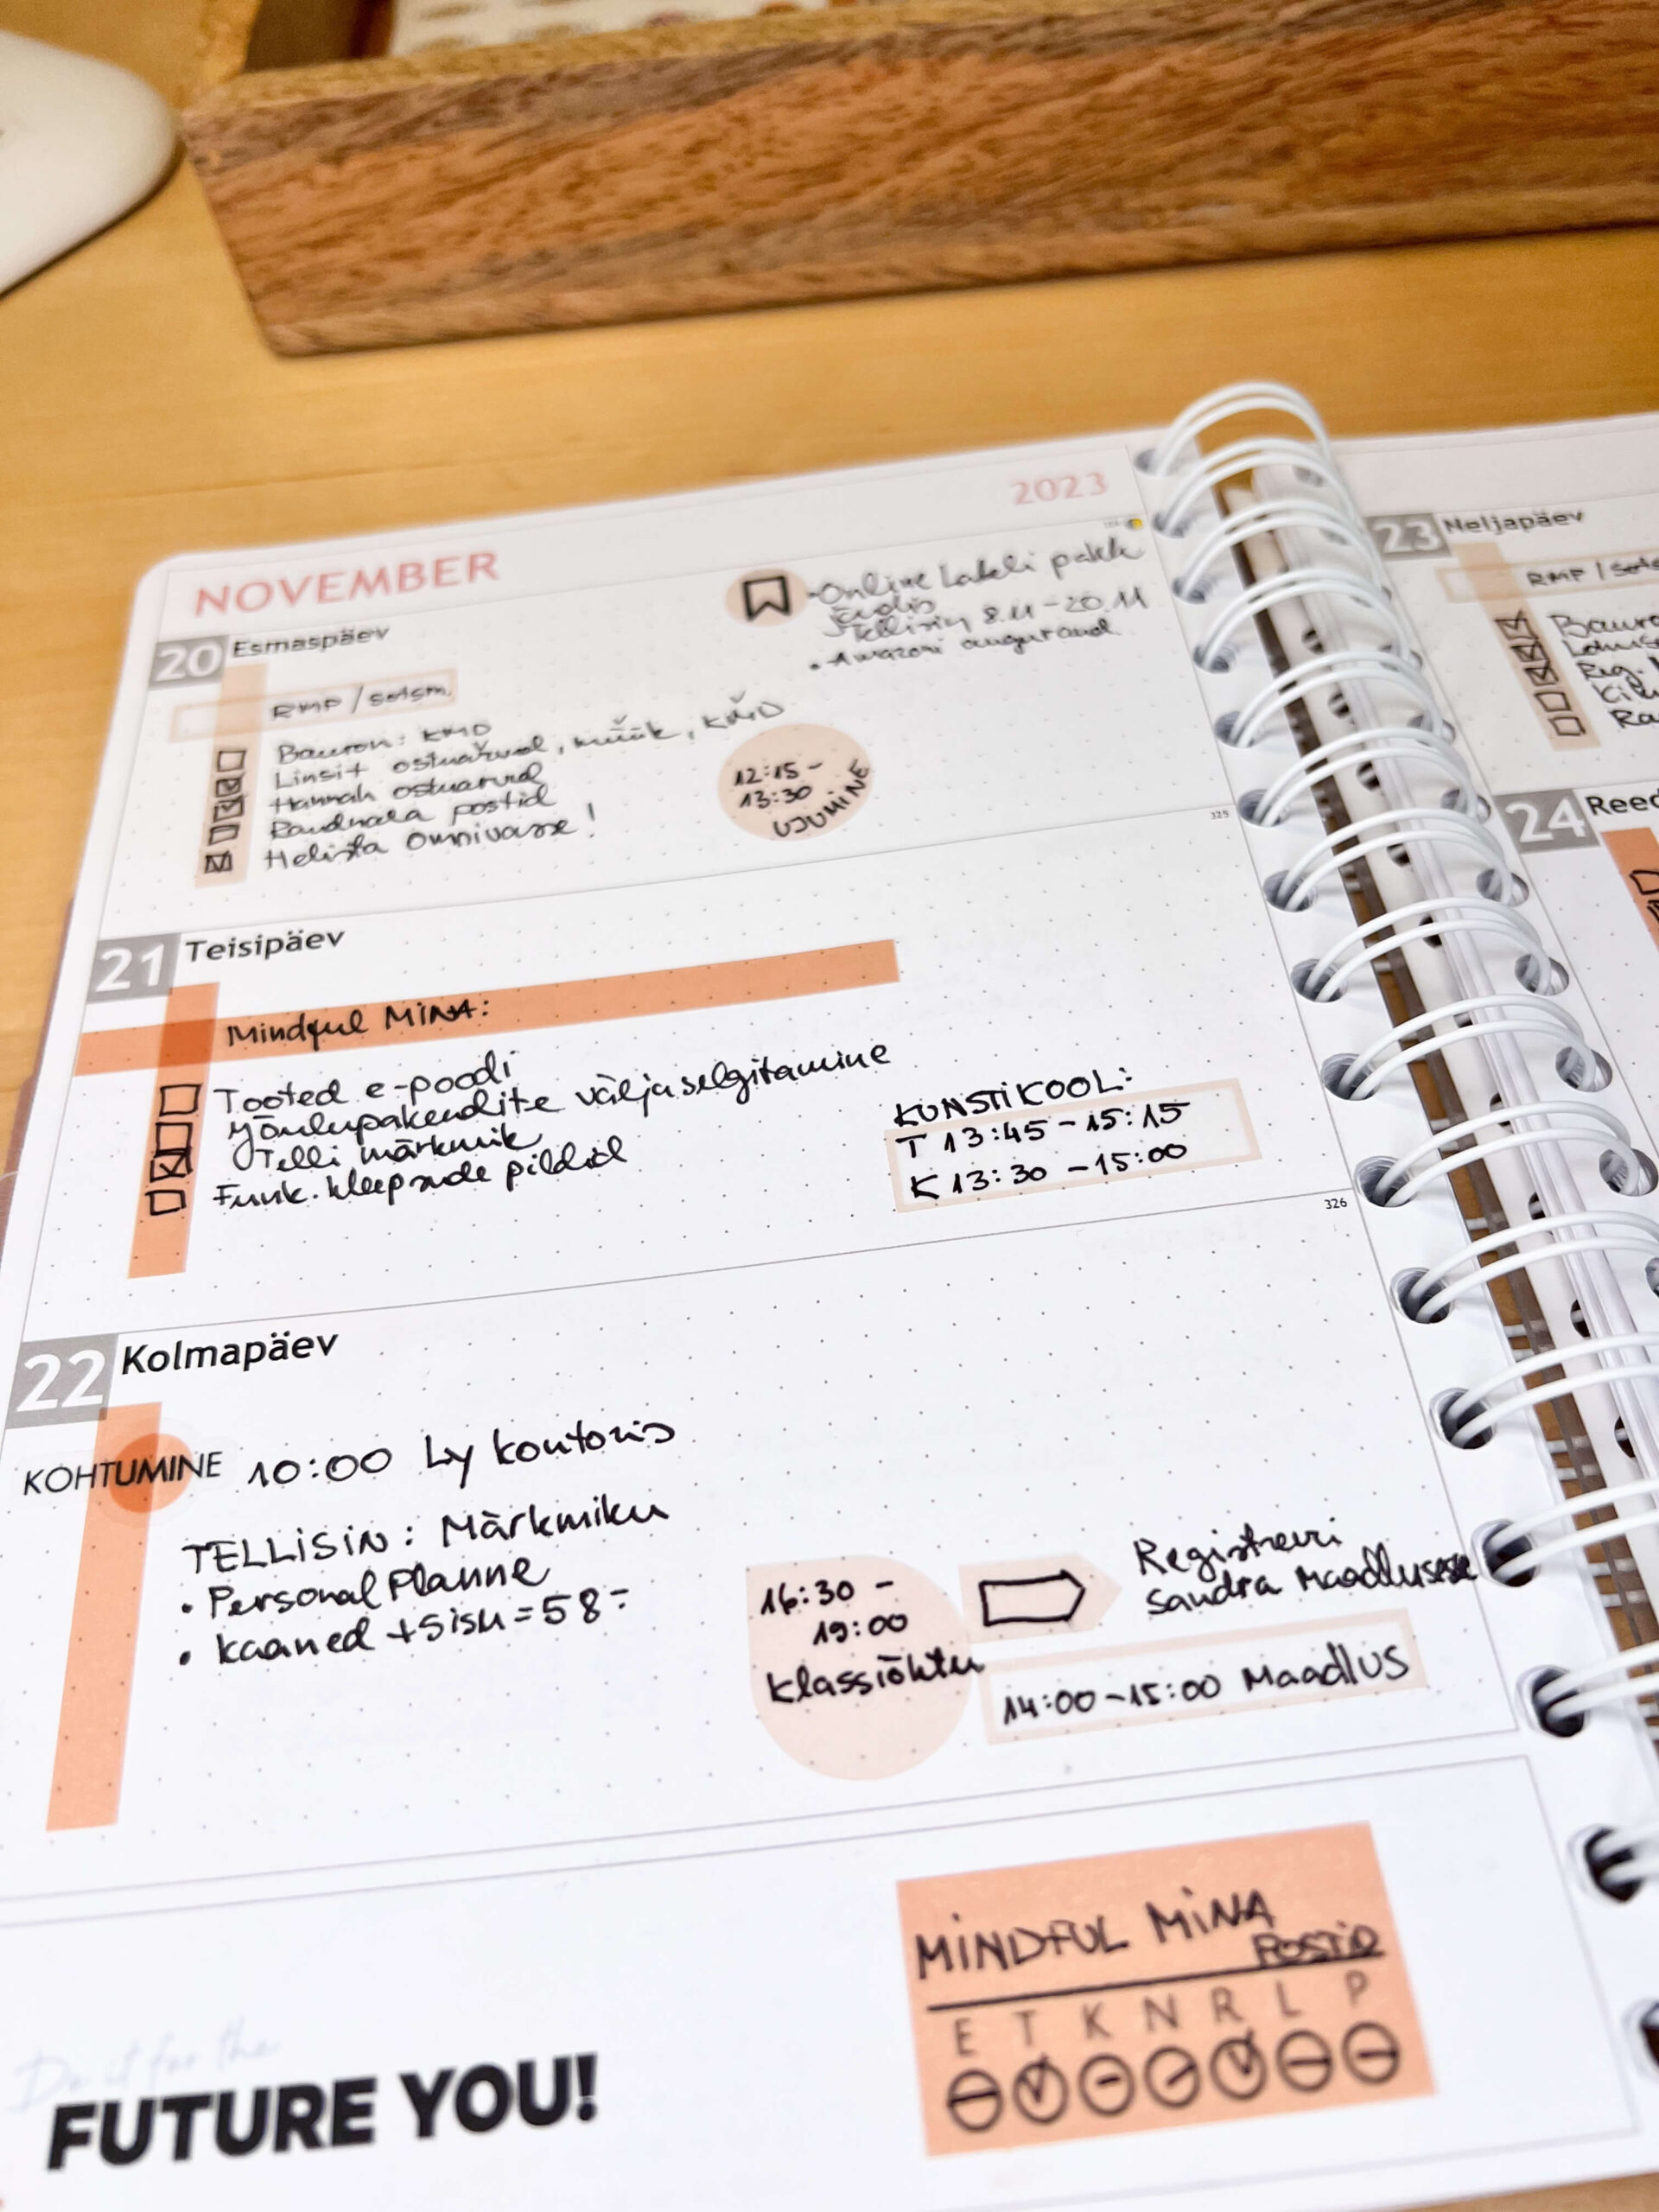 2023
NOVEMBER
20 Esmaspäev
RMP / sotsm.
Bauron: KMD
Linsit ostuarved, müük, KMD
Hannah ostuarved
Raudvara postid
Helista Omnivasse!
-Online Labeli pakk
Tellisin 8.11-20.11
• Amazoni
12:15-
13:30
UJUMINE
325
21 Teisipäev
Mindful MINA:
Tooted e-poodi
Jõulupakendite väljaselgitamine
Telli märkmik
Funk. kleepsude pildid
KUNSTIKOOL:
T 13:45-15:15
K 13:30-15:00
326
22 Kolmapäev
KOHTUMINE 10:00 Ly kontoris
TELLISIN: Märkmiku
• Personal Planne
• kaaned + sisu = 58.-
16:30 -
19:00
Klassiõhtu
Registreeri
Sandra Maadlusesse
14:00-15:00 Maadlus
Do it for the
FUTURE YOU!
MINDFUL MINA
POSTID
E T K N R L P
23 Neljapäev
RMP / sots
Reg.
Ra
24 Reed